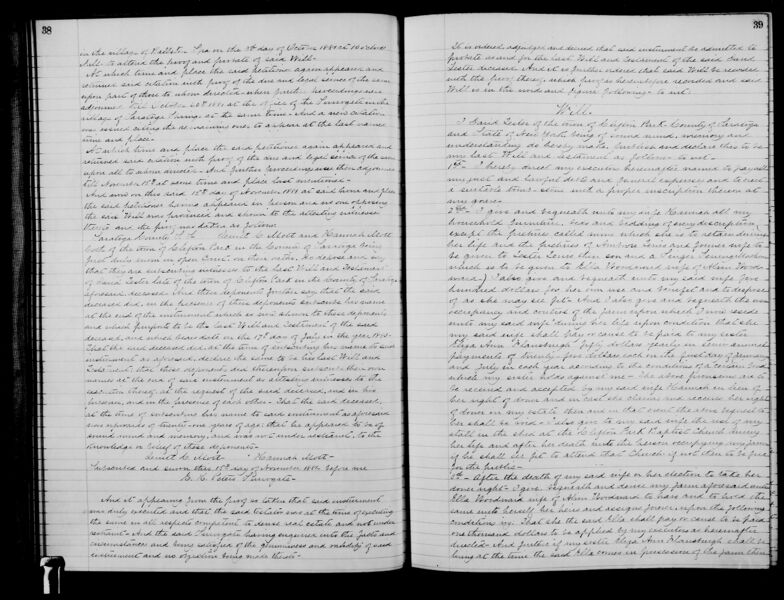 38
in the village of Ballston Spa on the 5th day of October 1881 at 10 o'clock
A.M. to attend the proof and probate of said Will-
At which time and place the said petitioner again appeared and
returned said citation with proof of the due and legal service of the same
upon part of those to whom directed when further proceedings were
adjourned till October 1881 at the office of the Surrogate in the
village of Saratoga Springs at the same time- And a new citation
was issued citing the remaining ones to appear at the last named
time and place-
At which time and place the said petitioner again appeared and
returned said citation with proof of the due and legal service of the same
upon all to whom directed- And further proceedings were then adjourned
till November 15th at same time and place last mentioned-
And now on this said 15th day of November 1881 at said time and place
the said petitioner having appeared in person and no one opposing
the said Will was produced and shown to the attesting witnesses
thereto and the proof was taken as follows
Saratoga County S.S. Lewis C. Mott and Hannah Mott
both of the town of Clifton Park in the County of Saratoga being
first duly sworn in open Court on their oaths, do depose and say
that they are subscribing witnesses to the last Will and Testament
of David Lester late of the town of Clifton Park in the County of Saratoga
aforesaid deceased. And these deponents further say that the said
deceased did, in the presence of these deponents subscribe his name
at the end of the instrument which is now shown to these deponents
and which purports to be the last Will and Testament of the said
deceased, and which bears date on the 17th day of July in the year
That the said deceased did, at the time of subscribing his name to said
instrument as aforesaid, declare the same to be his last Will and
Testament; that these deponents did thereupon subscribe their own
names at the end of said instrument as attesting witnesses to the
execution thereof, at the request of the said deceased, and in his
presence, and in the presence of each other- That the said deceased,
at the time of subscribing his name to said instrument as aforesaid
was upwards of twenty-one years of age: that he appeared to be of
sound mind and memory, and was not under restraint, to the
knowledge or belief of these deponents-
Lewis C. Mott- Hannah Mott-
Subscribed and sworn this 15th day of November 1881 before me
Surrogate-
And it appearing from the proof so taken that said instrument
was duly executed and that the said testator was at the time of executing
the same in all respects competent to devise real estate and not under
restraint- And the said Surrogate having enquired into the facts and
circumstances and being satisfied of the genuineness and validity of said
instrument and no objection being made thereto-
39
It is ordered, adjudged and decreed that said instrument be admitted to
probate as and for the last Will and Testament of the said David
Lester deceased. And it is further ordered that said Will be recorded
with the proof thereof, which proof is hereinbefore recorded and said
Will is in the words and figures following- to wit:
Will-
I David Lester of the town of Clifton Park- County of Saratoga
and State of New York being of sound mind, memory and
understanding do hereby make, publish and declare this to be
my last Will and testament as follows- to wit-
1st- I hereby direct my executors hereinafter named to pay all
my just and lawful debts and funeral expenses and to erect
a suitable tomb-stone with a proper inscription thereon at
my grave-
2nd- I give and bequeath unto my wife Hannah all my
household furniture, beds and bedding of every description,
except the pictures called mine which she is to retain during
her life and the pictures of
be given to Lester Lewis their son and a Singer Sewing Machine
which is to be given to Ella Woodward wife of Alvin Wood-
ward. I also give and bequeath unto my said wife five
hundred dollars for her own use and benefit and to dispose
of as she may see fit- And I also give and bequeath the use
occupancy and control of the farm upon which I now reside
unto my said wife during her life upon condition that she
my said wife shall pay or cause to be paid to my sister
Eliza Ann Flansburgh fifty dollars yearly in semi annual
payments of twenty-five dollars each on the first day of January
and July in each year according to the conditions of a certain bond
which my sister holds against me- The above provisions are to
be received and accepted by my said wife Hannah in lieu of
her right of dower and in case she claims and receives her right
of dower in my estate then and in that event the above bequest to
her shall be void- I also give to my said wife the use of my
stall in the shed at the Clifton Park Baptist Church during
her life and after her death unto the person occupying my farm
if he shall see fit to attend that Church if not then to be free
for the public-
3rd- After the death of my said wife or her election to take her
dower right- I give, bequeath and devise my farm aforesaid unto
Ella Woodward wife of Alvin Woodward to have and to hold the
same unto herself her heirs and assigns forever, upon the following
conditions viz. That she the said Ella shall pay or cause to be paid
one thousand dollars to be applied by my executors as hereinafter
directed- And further if my sister Eliza Ann Flansburgh shall be
living at the time the said Ella comes in possession of the farm then